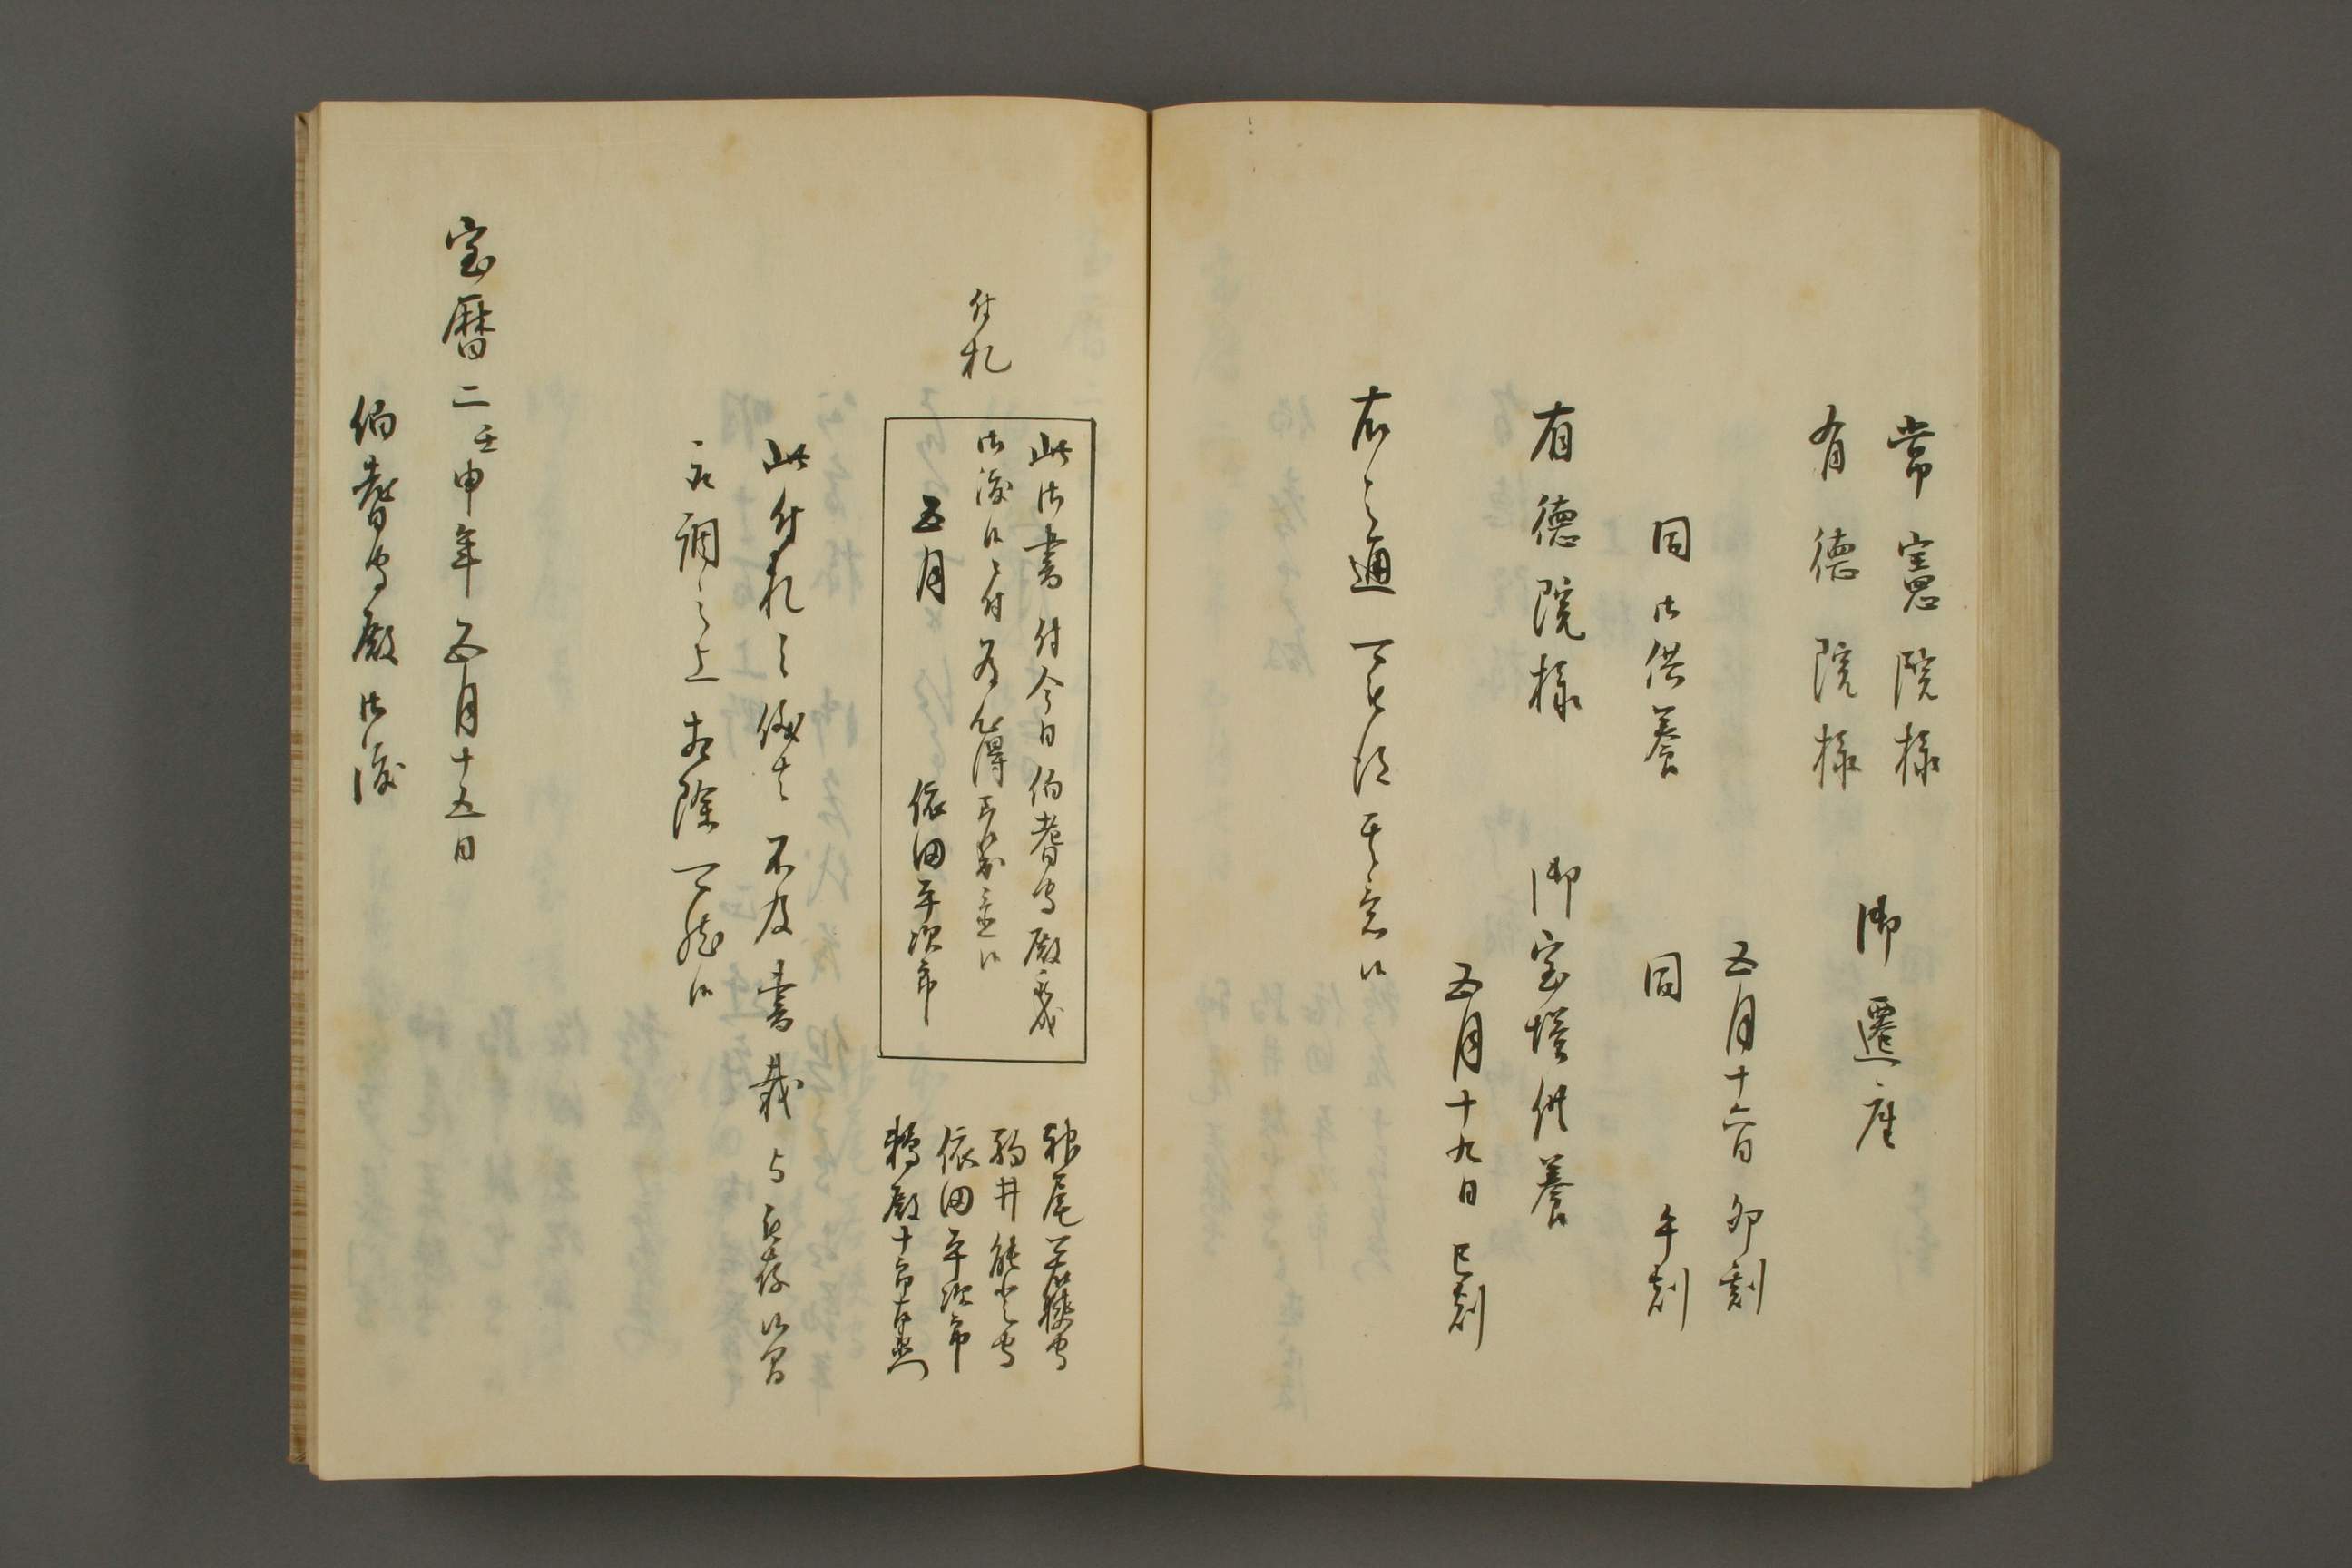 常憲院様
有徳院様
御遷座
五月十六日 卯刻
同御供養
同 午刻
有徳院様 御宝塔供養
五月十九日 巳刻
右之通可被得其意候
付札
此御書付今日伯耆守殿
御渡候ニ付為心得
五月 依田平次郎
神尾若狭守
駒井能登守
依田平次郎
鵜殿十郎左衛門
此付札之儀者不及書載与も存候間
取調之上相除可然候
宝暦二壬申年五月十五日
伯耆守殿御渡